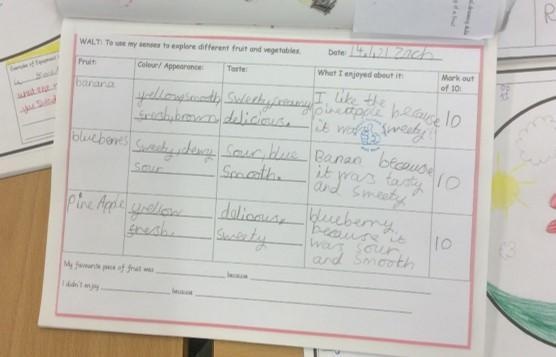 WALT: To use my senses to explore different fruit and vegetables. Date: 14/4/21 Zach
Fruit: Colour/ Appearance: Taste: What I enjoyed about it: Mark out of 10:
banana
yellow, smooth
fresh, brown
Sweety, creamy
delicious.
I like the
pineapple because
it was sweety
10
blueberries
Sweety, chewy
sour
Sour, blue
Smooth.
Banan because
it was tasty
and sweety
10
Pine Apple
yellow
fresh.
delicious,
Sweety
blueberry
because it
was sour
and smooth
10
My favourite piece of fruit was because
I didn't enjoy because